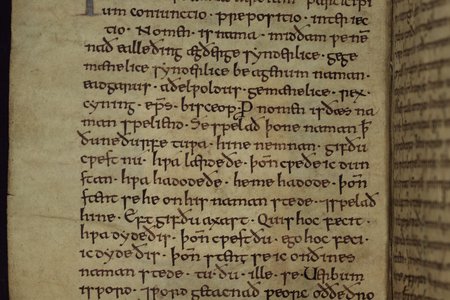 participi
um coniunctio · prepositio · interiec
tio · Nomen · is nama · mid ðam þe ne
nað ealle ðing ægðær ge synderlice · ge ge
mænelice synderlice be agenum naman ·
eadgarus · aðelpoldus · gemænelice · rex ·
cyning · ep̅s · bisceop · P nomen is ðæs na
man speliend · Se spelað þone naman ꝥ
ðu ne ðurfe tupa · hine nemnan · gif ðu
cpest nu · hpa lærde ðe · þoñ cpeðe ic dun
stan · hpa hadode ðe · he me hadode · þoñ
stent se he on his naman stede · ⁊ spelað
hine · Eft gif ðu axast · Quis hoc fecit ·
hpa dyde ðis · þoñ cpest ðu · ego hoc feci ·
ic dyde ðis · þoñ stent se ic on ðines
naman stede · tu · ðu · ille · se · Uerbum
is pord · ⁊ pord getacnað peorc oððe ðro